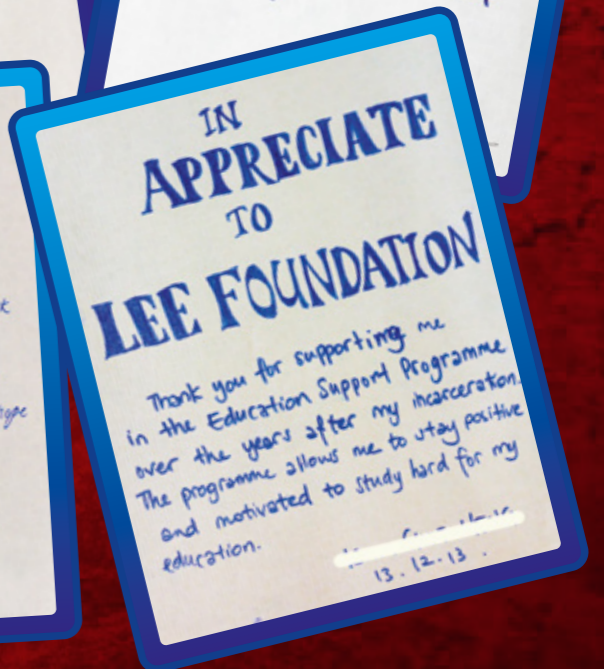 IN
APPRECIATE
TO
LEE FOUNDATION
Thank you for supporting me
in the Education Support Programme
over the years after my incarceration.
The programme allows me to stay positive
and motivated to study hard for my
education.
13.12.13.